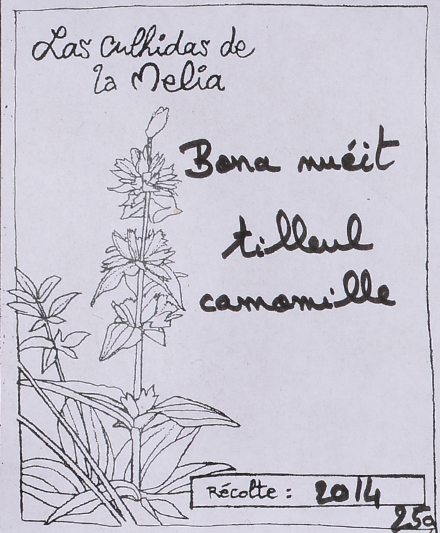 Las Culhidas de
la Melia
Bona nuéit
tilleul
camomille
Récolte : 2014
25g